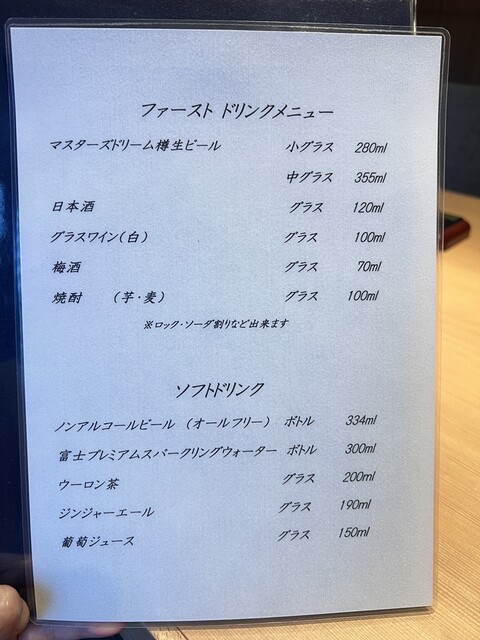 ファースト ドリンクメニュー
マスターズドリーム樽生ビール 小グラス 280ml
中グラス 355ml
日本酒 グラス 120ml
グラスワイン(白) グラス 100ml
梅酒 グラス 70ml
焼酎 (芋・麦) グラス 100ml
※ロック・ソーダ割りなど出来ます
ソフトドリンク
ノンアルコールビール (オールフリー) ボトル 334ml
富士プレミアムスパークリングウォーター ボトル 300ml
ウーロン茶 グラス 200ml
ジンジャーエール グラス 190ml
葡萄ジュース グラス 150ml